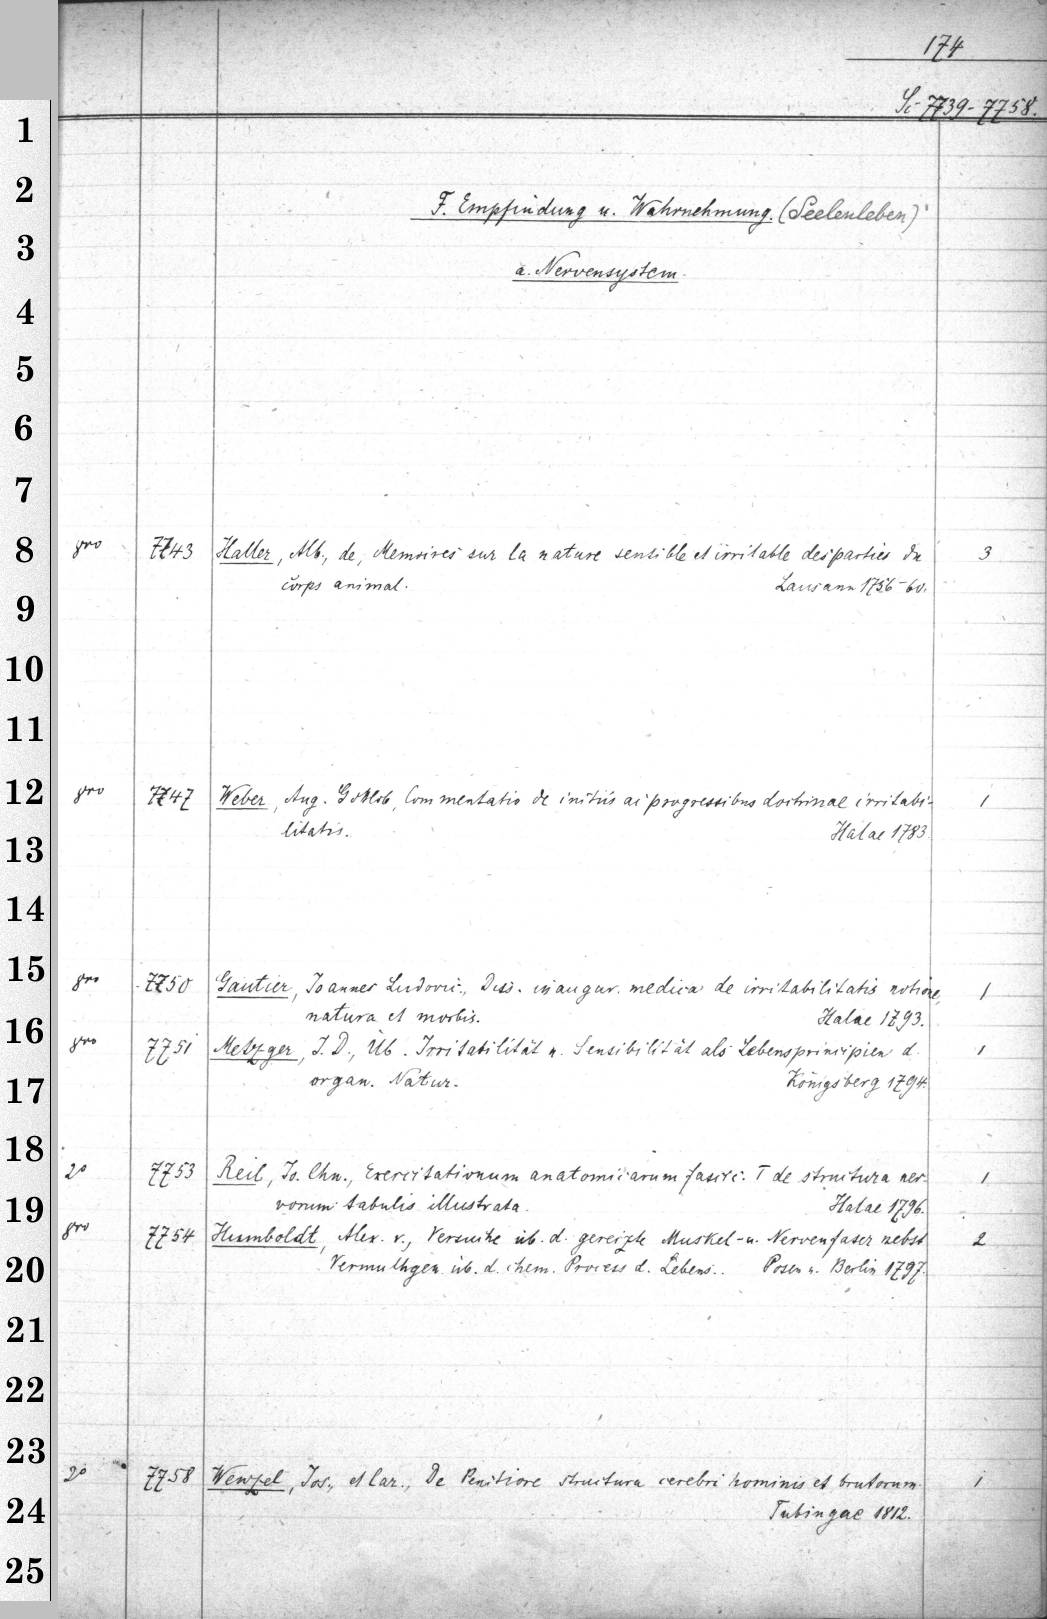 174
Si-7739-7758.
1
2
F. Empfindung u. Wahrnehmung. (Seelenleben)
3
a. Nervensystem.
4
5
6
7
8 8vo 7743 Haller, Alb., de, Memoires sur la nature sensible et irritable des parties du 3
corps animal. Lausann 1756-60.
9
10
11
12 8vo 7747 Weber, Aug. Gottlob, Commentatio de initiis ac progressibus doctrinae irritabi- 1
litatis. Halae 1783.
13
14
15 8vo 7750 Gautier, Joannes Ludovic., Diss. inaugur. medica de irritabilitatis notione, 1
natura et morbis. Halae 1793.
16 8vo 7751 Metzger, J. D., Üb. Irritabilität u. Sensibilität als Lebensprincipien d. 1
organ. Natur. Königsberg 1794.
17
18 2o 7753 Reil, Jo. Chn., Exercitationum anatomicarum fascic. I de structura ner- 1
vorum tabulis illustrata. Halae 1796.
19 8vo 7754 Humboldt, Alex. v., Versuche üb. d. gereizte Muskel- u. Nervenfaser nebst 2
Vermuthgen üb. d. chem. Process d. Lebens. Posen u. Berlin 1797.
20
21
22
23 2o 7758 Wenzel, Jos., et Car., De Penitiore structura cerebri hominis et brutorum. 1
Tubingae 1812.
24
25